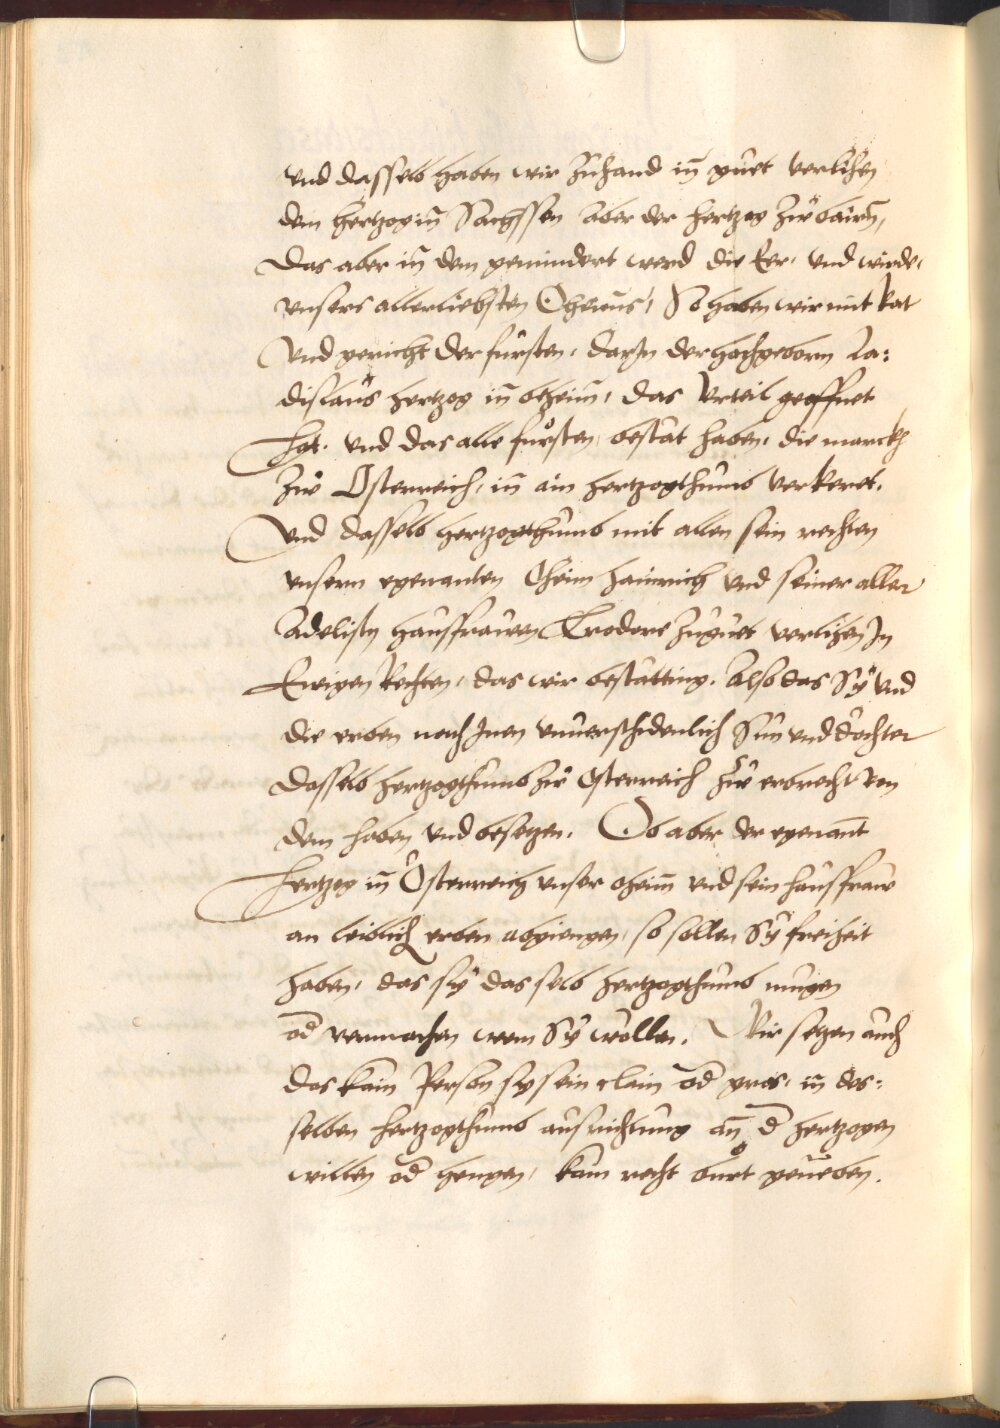 vnd dasselb haben wir zuhand in guet verlihen
dem hertzog in Sachssen Aber der hertzog zw bairn,
Das aber in dem gemindert werd die Eer, vnd wirde,
vnsers allerliebsten Oheims, So haben wir mit Rat
Vnd gericht der fürsten, darJn der hochgeborn La:
dislaus hertzog in beheim, das Vrteil geoffnet
hat, vnd das alle fürsten, bestät haben, die marckh
zw Österreich, in ain hertzogthumb verkeret,
Vnd dasselb hertzogthumb mit allen sein rechten
vnserm egenanten Oheim hainrich vnd seiner aller
Adelistn hausfrawen Trodore zuguet verlihen Jn
Ewigen Rechten, das wir bestatting, Also das Sÿ vnd
die erben nach Jnen vnuerschidenlich Sün vnd töchter
dasselb hertzogthumb zw Osterreich zw erbrecht von
dem haben vnd besetzen, Ob aber der egenant
hertzog in Österreich vnser oheim vnd sein hausfraw
an leiblich erben abgiengen, so sollen Sÿ freiheit
haben, das sÿ das selb hertzogthumb mugen
od vermachen wem Sÿ wöllen, Wir setzen auch
das kain Person sy sein clain od gros, in des:
selben hertzogthumb ausrichtung an d hertzogen
willen od hengen, kain recht turt geueben.